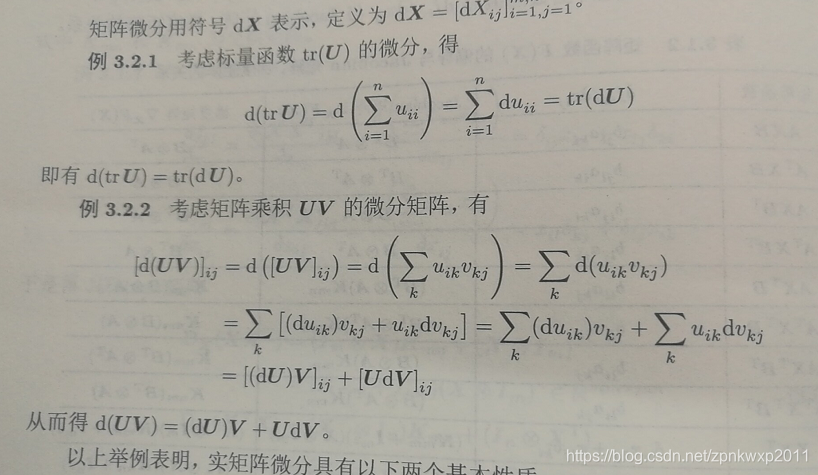 矩阵微分用符号 dX 表示，定义为 dX = [dX_{ij}]_{i=1,j=1}^{m,n}。
例 3.2.1 考虑标量函数 tr(U) 的微分，得
d(tr U) = d(∑_{i=1}^{n} u_{ii}) = ∑_{i=1}^{n} du_{ii} = tr(dU)
即有 d(tr U) = tr(dU)。
例 3.2.2 考虑矩阵乘积 UV 的微分矩阵，有
[d(UV)]_{ij} = d([UV]_{ij}) = d(∑_k u_{ik}v_{kj}) = ∑_k d(u_{ik}v_{kj})
= ∑_k [(du_{ik})v_{kj} + u_{ik}dv_{kj}] = ∑_k (du_{ik})v_{kj} + ∑_k u_{ik}dv_{kj}
= [(dU)V]_{ij} + [UdV]_{ij}
从而得 d(UV) = (dU)V + UdV。
以上举例表明，实矩阵微分具有以下两个基本性质
https://blog.csdn.net/zpnkwxp2011